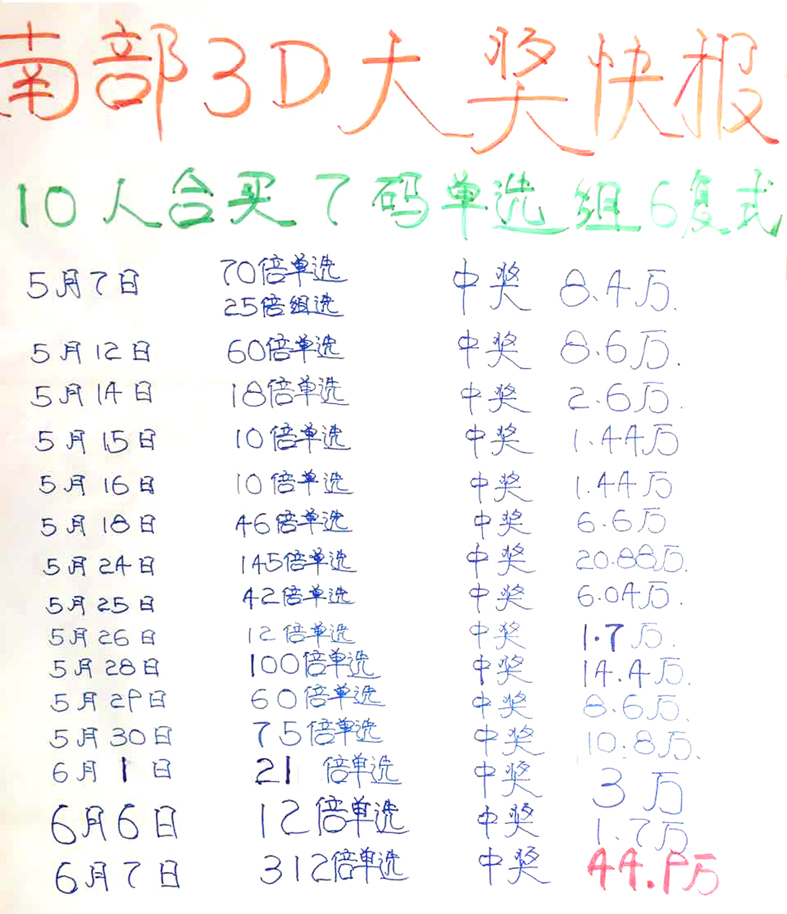 南部3D大奖快报
10人合买7码单选组6复式
5月7日 70倍单选 25倍组选 中奖 8.4万.
5月12日 60倍单选 中奖 8.6万.
5月14日 18倍单选 中奖 2.6万.
5月15日 10倍单选 中奖 1.44万
5月16日 10倍单选 中奖 1.44万
5月18日 46倍单选 中奖 6.6万
5月24日 145倍单选 中奖 20.88万.
5月25日 42倍单选 中奖 6.04万.
5月26日 12倍单选 中奖 1.7万.
5月28日 100倍单选 中奖 14.4万.
5月29日 60倍单选 中奖 8.6万.
5月30日 75倍单选 中奖 10.8万.
6月1日 21倍单选 中奖 3万
6月6日 12倍单选 中奖 1.7万
6月7日 312倍单选 中奖 44.9万